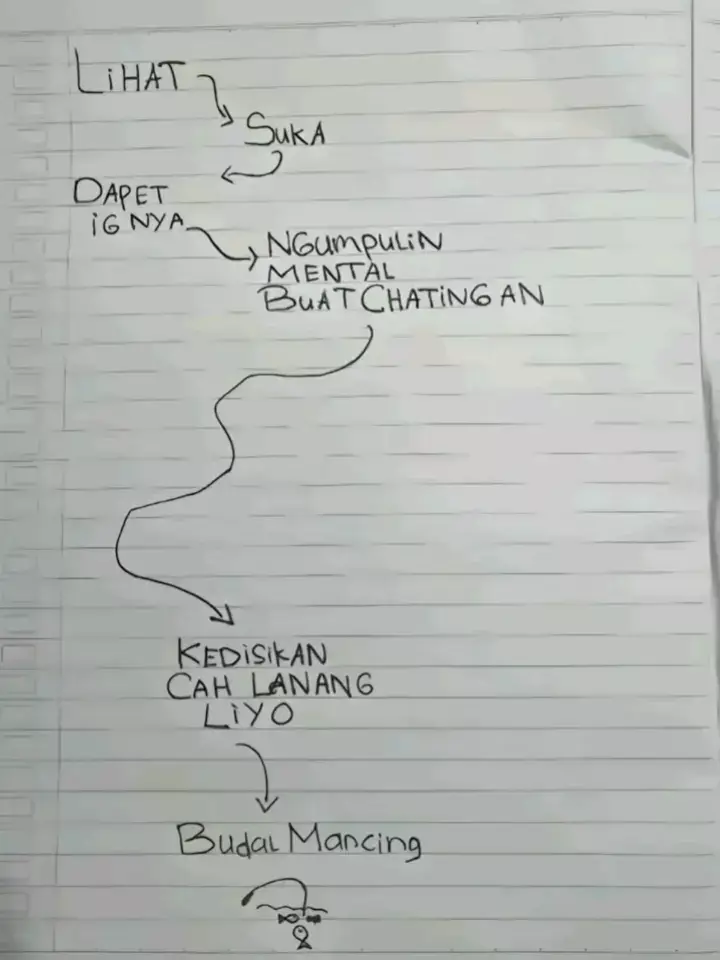 LiHAT
SUKA
DAPET
iGNYA
NGUMPULiN
MENTAL
BUAT CHATiNGAN
KEDiSiKAN
CAH LANANG
LiYO
Budal Mancing